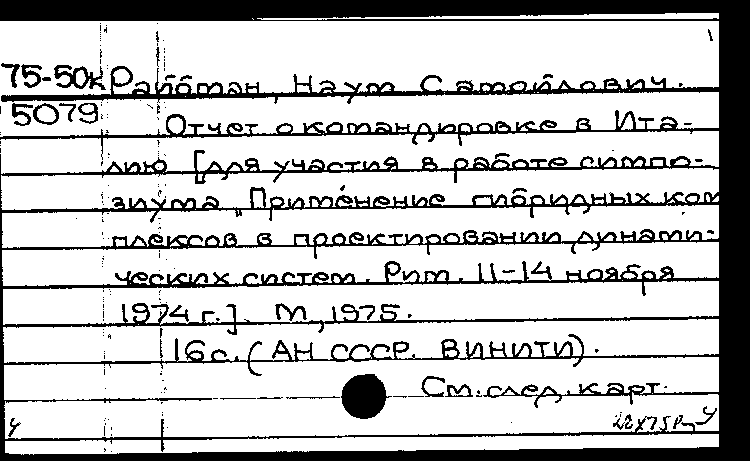 75-50к Райбман, Наум Самойлович.
5079
Отчет о командировке в Ита-
лию [для участия в работе симпо-
зиума „Применение гибридных ком
плексов в проектировании динами-
ческих систем. Рим. 11-14 ноября
1974 г.]. М, 1975.
16с. (АН СССР. ВИНИТИ).
См. след. карт.